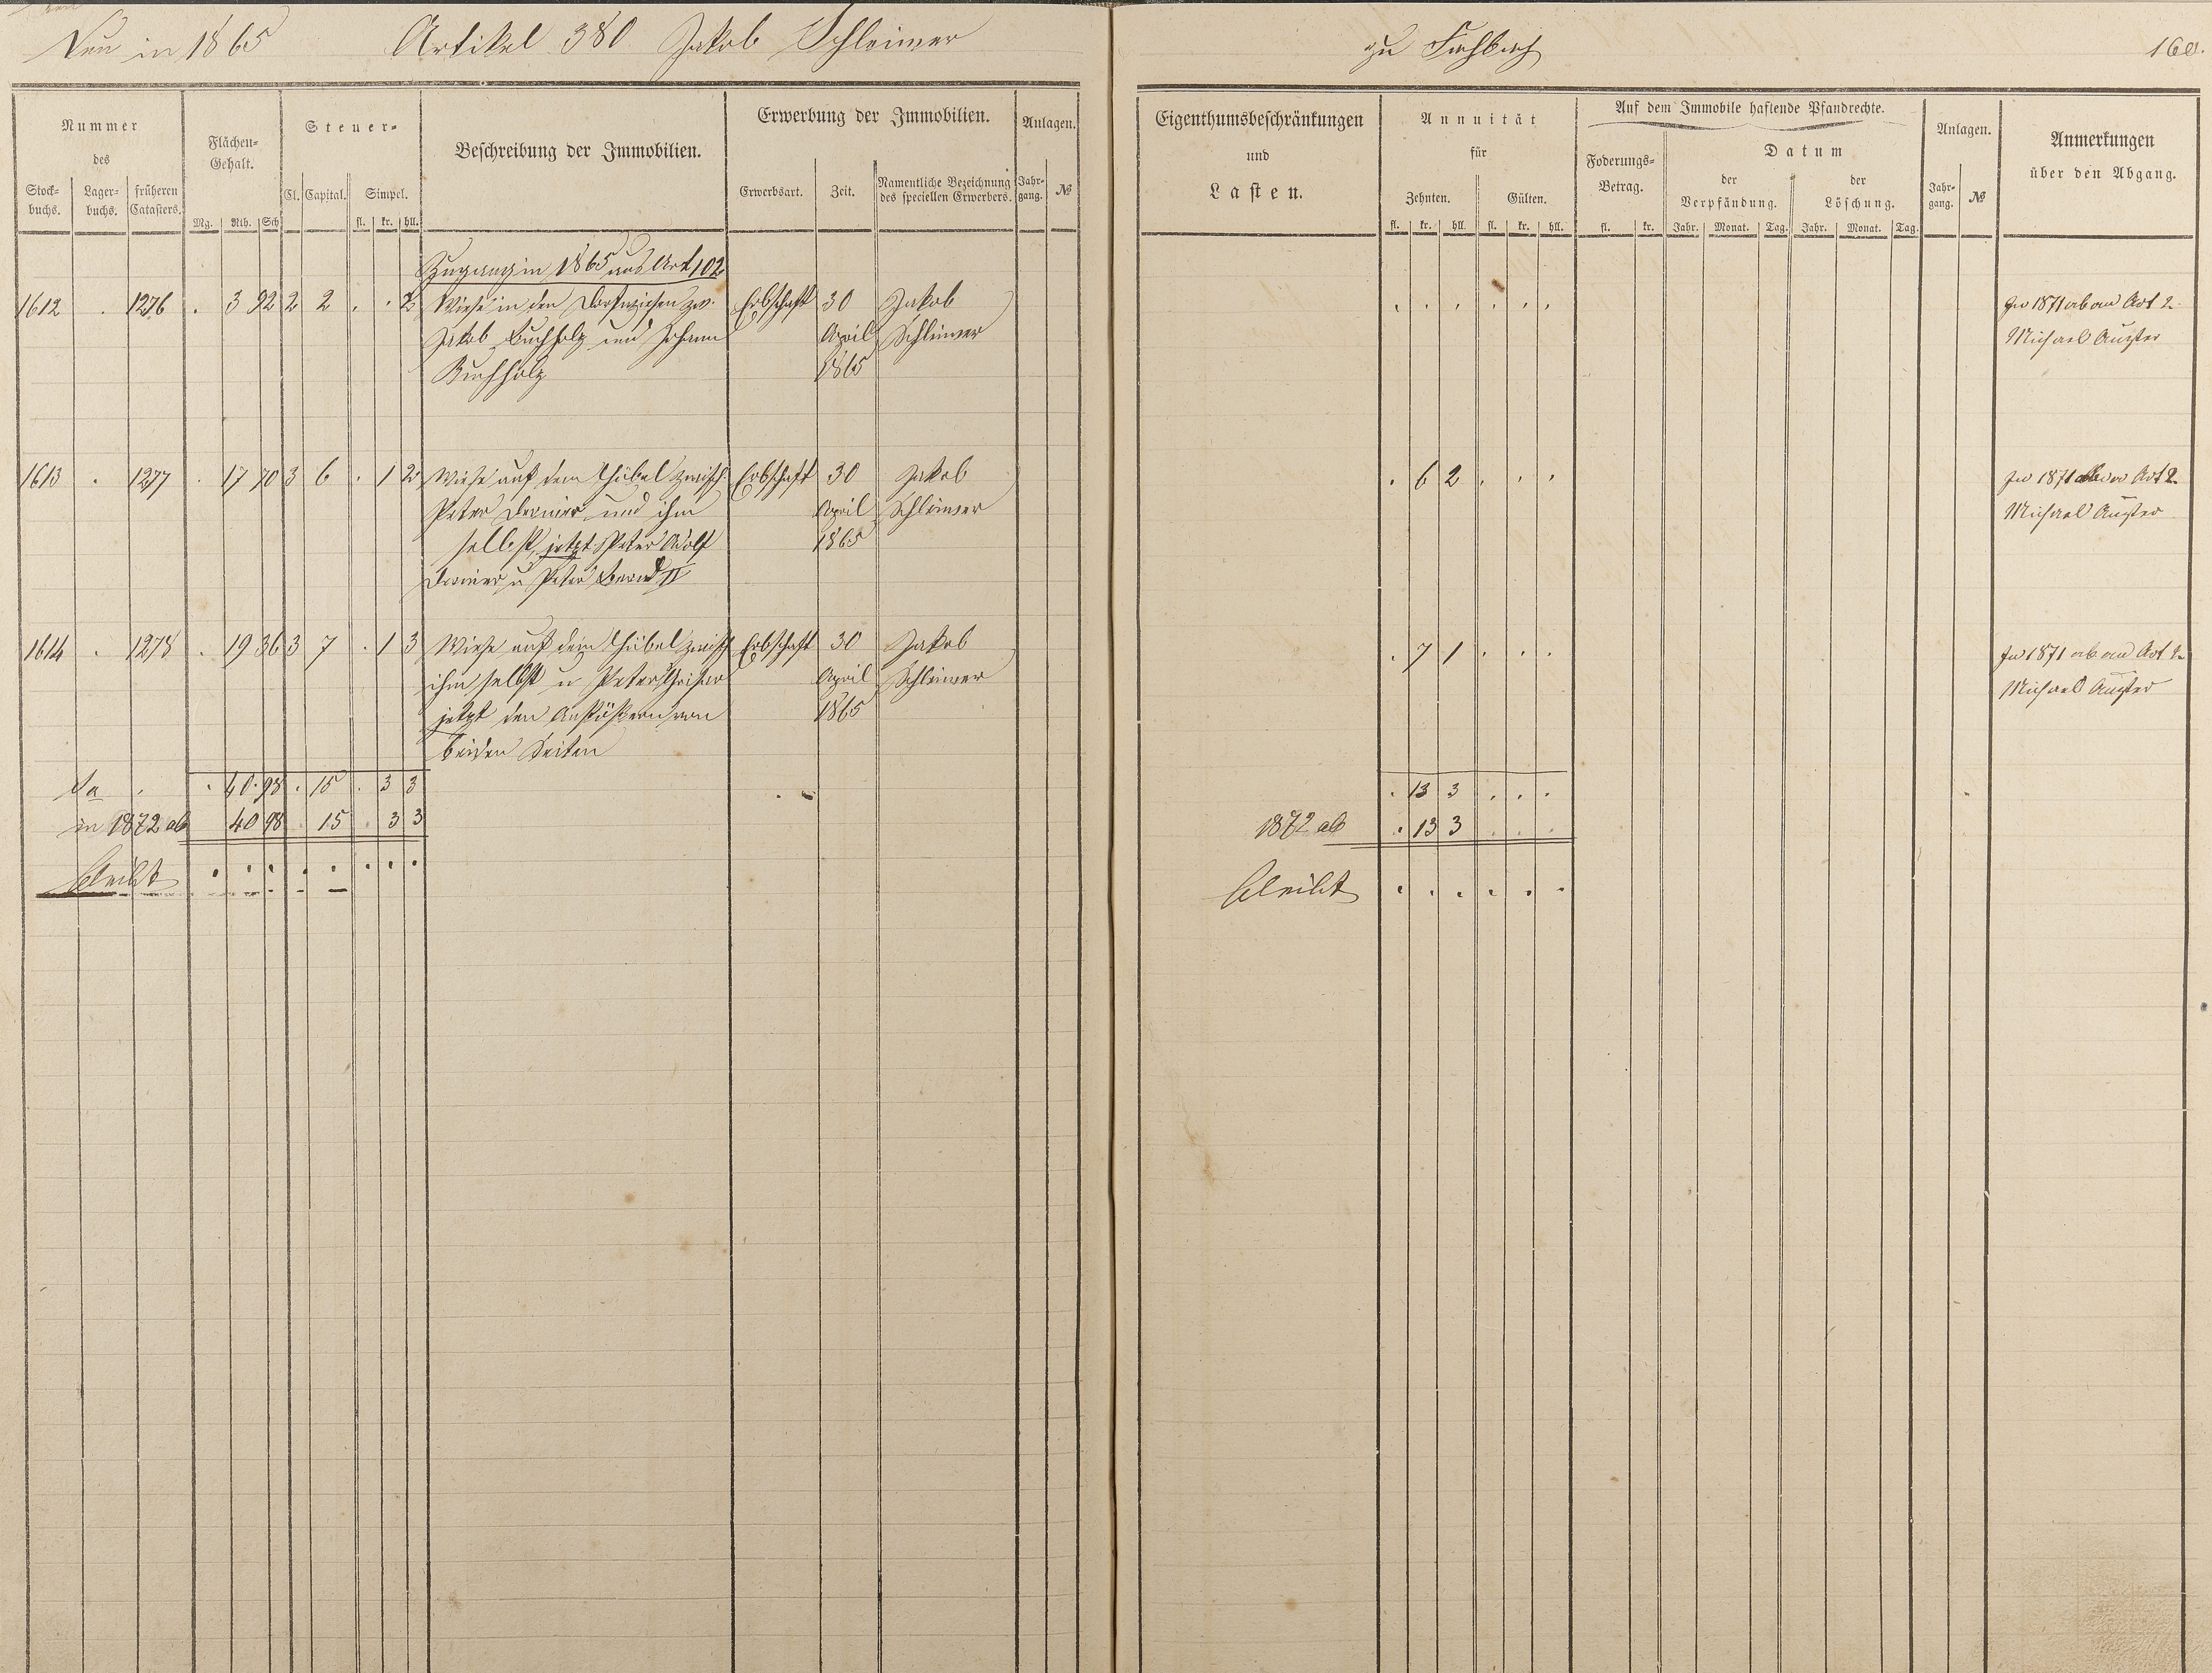 Neu in 1865 Artikel 380 Jakob Schleimer
zu Fachbach 160.
Nummer
des
Stock-
buchs.
Lager-
buchs.
früheren
Catasters.
Flächen-
Gehalt.
Mg. Rth. Sch
Steuer-
Cl. Capital. Simpel.
fl. kr. hll.
Beschreibung der Immobilien.
Erwerbung der Immobilien.
Erwerbsart. Zeit.
Namentliche Bezeichnung
des speciellen Erwerbers.
Anlagen.
Jahr-
gang. №
Eigenthumsbeschränkungen
und
Lasten.
Annuität
für
Zehnten. Gülten.
fl. kr. hll. fl. kr. hll.
Auf dem Immobile haftende Pfandrechte.
Foderungs-
Betrag.
fl. kr.
Datum
der
Verpfändung.
der
Löschung.
Jahr. Monat. Tag. Jahr. Monat. Tag.
Anlagen.
Jahr-
gang. №
Anmerkungen
über den Abgang.
Zugang in 1865 aus Art 102
1612 . 1276 . 3 92 2 2 . . 2 Wiese in den Dorfwiesen zw. Erbschaft 30 Jakob . . . . . . In 1871 ab an Art 2
Jakob Buchholz und Johann April Schleimer Michael Augster
Buchholz 1865
1613 . 1277 . 17 70 3 6 . 1 2 Wiese auf dem Hübel zwisch. Erbschaft 30 Jakob . 6 2 . . . In 1871 ab an Art 2
Peter Dernier und ihm April Schleimer Michael Augster
selbst, jetzt Peter Adolf 1865
Dernier u Peter Bernd II
1614 . 1278 . 19 36 3 7 . 1 3 Wiese auf dem Hübel zwisch Erbschaft 30 Jakob . 7 1 . . . In 1871 ab an Art 2
ihm selbst u Peter April Schleimer Michael Augster
jetzt den Anstößern von 1865
beiden Seiten
Sa . . 40 98 . 15 . 3 3 . 13 3 . . .
in 1872 ab 40 98 . 15 . 3 3 1872 ab . 13 3 . . .
bleibt . . . . . . . . bleibt . . . . . .